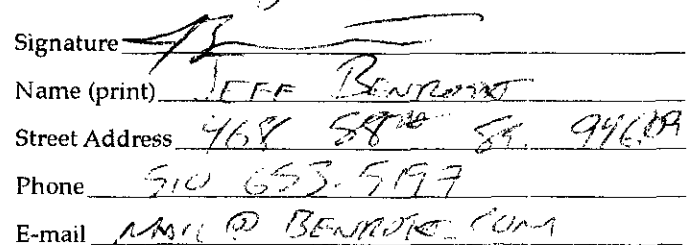 Signature
Name (print) JEFF
Street Address 468 58th St. 94609
Phone 510 653-5197
E-mail MAIL @